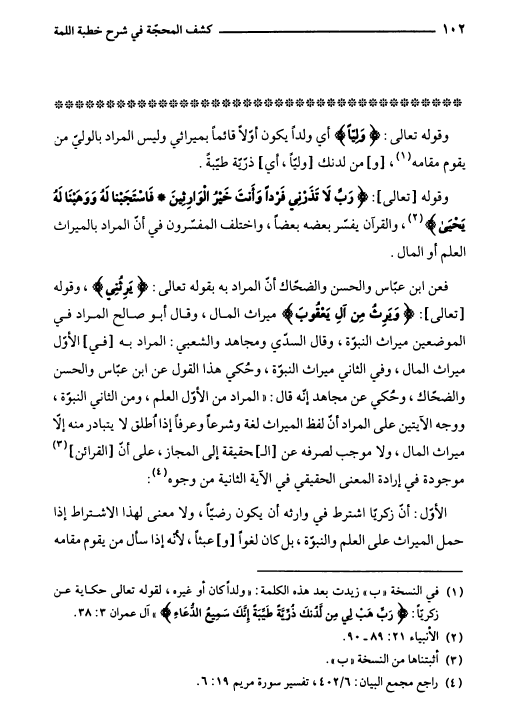 ١٠٢ كشف المحجّة في شرح خطبة اللمة
وقوله تعالى : ﴿ وَلِيّاً ﴾ أي ولداً يكون أولاً قائماً بميراثي وليس المراد بالوليّ من
يقوم مقامه(١) ، [و] من لدنك [وليّاً ، أي] ذرّية طيّبةً .
وقوله [تعالى]: ﴿ رَبِّ لَا تَذَرْنِي فَرْداً وَأَنتَ خَيْرُ الْوَارِثِينَ * فَاسْتَجَبْنَا لَهُ وَوَهَبْنَا لَهُ
يَحْيَىٰ ﴾(٢) ، والقرآن يفسّر بعضه بعضاً ، واختلف المفسّرون في أنّ المراد بالميراث
العلم أو المال .
فعن ابن عبّاس والحسن والضحّاك أنّ المراد به بقوله تعالى : ﴿ يَرِثُنِي ﴾ ، وقوله
[تعالى]: ﴿ وَيَرِثُ مِن آلِ يَعْقُوبَ ﴾ ميراث المال ، وقال أبو صالح المراد في
الموضعين ميراث النبوّة ، وقال السدّي ومجاهد والشعبي : المراد به [في] الأوّل
ميراث المال ، وفي الثاني ميراث النبوّة ، وحُكي هذا القول عن ابن عبّاس والحسن
والضحّاك ، وحُكي عن مجاهد إنّه قال : « المراد من الأوّل العلم ، ومن الثاني النبوّة ،
ووجه الآيتين على المراد أنّ لفظ الميراث لغة وشرعاً وعرفاً إذا أُطلق لا يتبادر منه إلّا
ميراث المال ، ولا موجب لصرفه عن [الـ] حقيقة إلى المجاز ، على أنّ [القرائن](٣)
موجودة في إرادة المعنى الحقيقي في الآية الثانية من وجوه(٤):
الأوّل : أنّ زكريّا اشترط في وارثه أن يكون رضيّاً ، ولا معنى لهذا الاشتراط إذا
حمل الميراث على العلم والنبوّة ، بل كان لغواً [و] عبثاً ، لأنّه إذا سأل من يقوم مقامه
(١) في النسخة «ب» زيدت بعد هذه الكلمة : «ولداً كان أو غيره ، لقوله تعالى حكاية عن
زكريّا : ﴿ رَبِّ هَبْ لِي مِن لَّدُنكَ ذُرِّيَّةً طَيِّبَةً إِنَّكَ سَمِيعُ الدُّعَاءِ ﴾ » آل عمران ٣ : ٣٨.
(٢) الأنبياء ٢١ : ٨٩ ـ ٩٠.
(٣) أثبتناها من النسخة «ب» .
(٤) راجع مجمع البيان : ٤٠٢/٦ ، تفسير سورة مريم ١٩ : ٦.